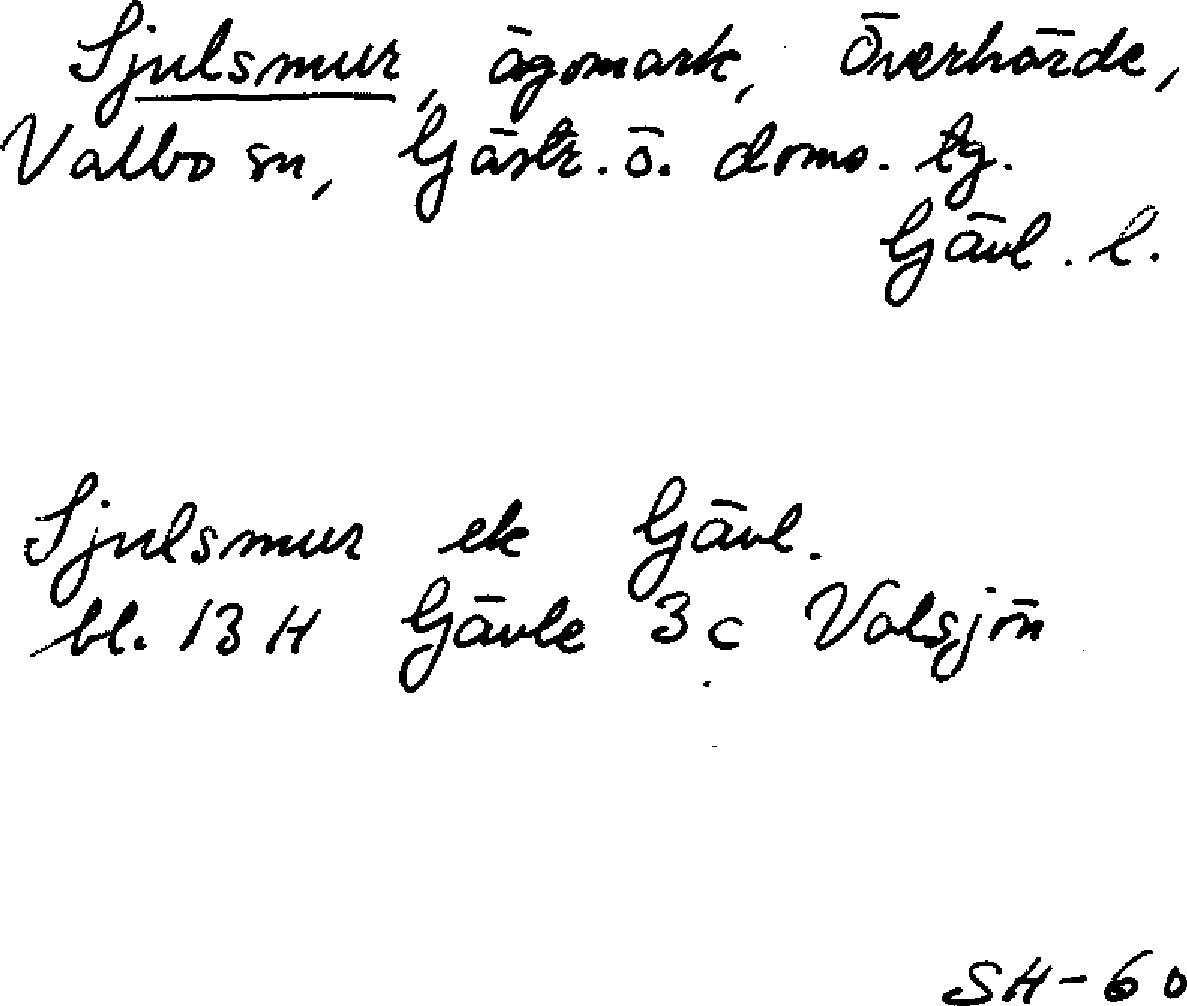 Sjulsmur, ägomark, Överhärde,
Valbo sn, Gästr. ö. doms. tg.
Gävl. l.
Sjulsmur ek Gävl.
bl. 13 H Gävle 3 c Valsjön
SH-60